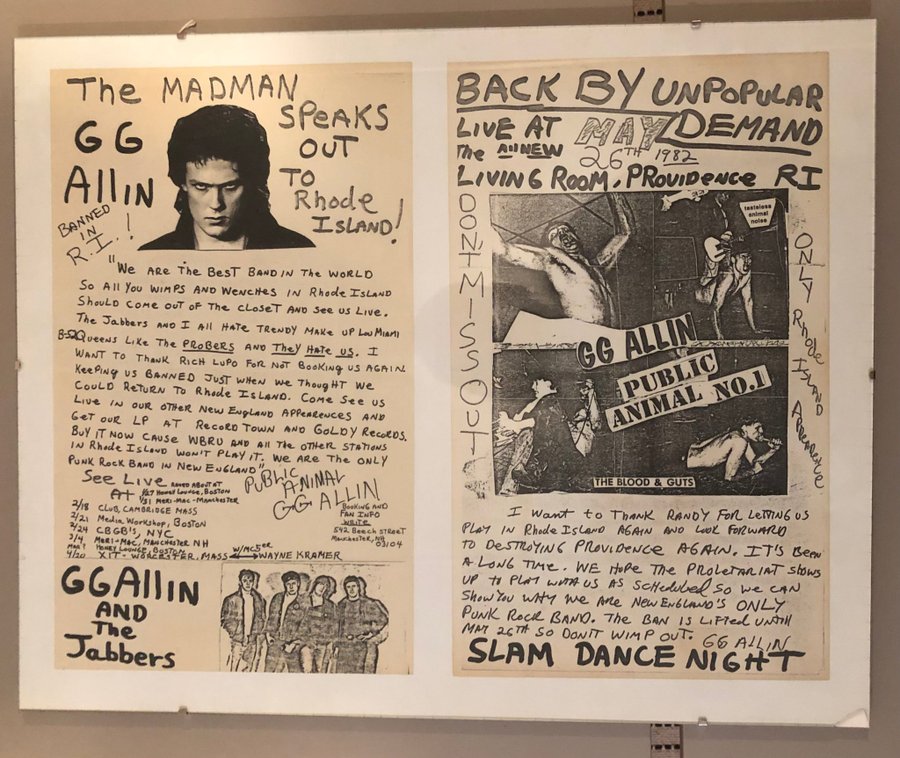 The MADMAN
SPEAKS
OUT
TO
Rhode
ISLAND!
GG
Allin
BANNED
IN
R.I.!
"WE ARE THE BEST BAND IN THE WORLD
SO ALL YOU WIMPS AND WENCHES IN RHODE ISLAND
SHOULD COME OUT OF THE CLOSET AND SEE US LIVE.
THE JABBERS AND I ALL HATE TRENDY MAKE UP LOU MIAMI
B-52Q QUEENS LIKE THE PROBERS AND THEY HATE US. I
WANT TO THANK RICH LUPO FOR NOT BOOKING US AGAIN
KEEPING US BANNED JUST WHEN WE THOUGHT WE
COULD RETURN TO RHODE ISLAND. COME SEE US
LIVE IN OUR OTHER NEW ENGLAND APPEARENCES AND
GET OUR LP AT RECORD TOWN AND GOLDY RECORDS.
BUY IT NOW CAUSE WBRU AND ALL THE OTHER STATIONS
IN RHODE ISLAND WON'T PLAY IT. WE ARE THE ONLY
PUNK ROCK BAND IN NEW ENGLAND"
PUBLIC
ANIMAL
GG ALLIN
See LIVE
AT
1/27 HONEY LOUNGE, BOSTON
1/31 MERI-MAC-MANCHESTER
2/18 CLUB, CAMBRIDGE MASS
2/21 Media Workshop, BOSTON
2/24 CBGB'S, NYC
3/4 MERI-MAC, MANCHESTER NH
HONEY LOUNGE, BOSTON
4/20 XIT-WORCESTER, MASS
W/MC5er
WAYNE KRAMER
BOOKING AND
FAN INFO
WRITE
542 BEECH STREET
MANCHESTER, NH
03104
GG Allin
AND
The
Jabbers
BACK BY UNPOPULAR
DEMAND
LIVE AT
The All NEW
MAY
26TH 1982
LIVING ROOM, PROVIDENCE RI
DON'T MISS OUT
tasteless
animal
noise
ONLY Rhode ISLAND APPEARENCE
GG ALLIN
PUBLIC
ANIMAL NO.1
THE BLOOD & GUTS
I WANT TO THANK RANDY FOR LETTING US
PLAY IN RHODE ISLAND AGAIN AND LOOK FORWARD
TO DESTROYING PROVIDENCE AGAIN. IT'S BEEN
A LONG TIME. WE HOPE THE PROLETARIAT SHOWS
UP TO PLAY WITH US AS SCHEDULED SO WE CAN
SHOW YOU WHY WE ARE NEW ENGLAND'S ONLY
PUNK ROCK BAND. THE BAN IS LIFTED UNTIL
MAY 26TH SO DON'T WIMP OUT. GG ALLIN
SLAM DANCE NIGHT